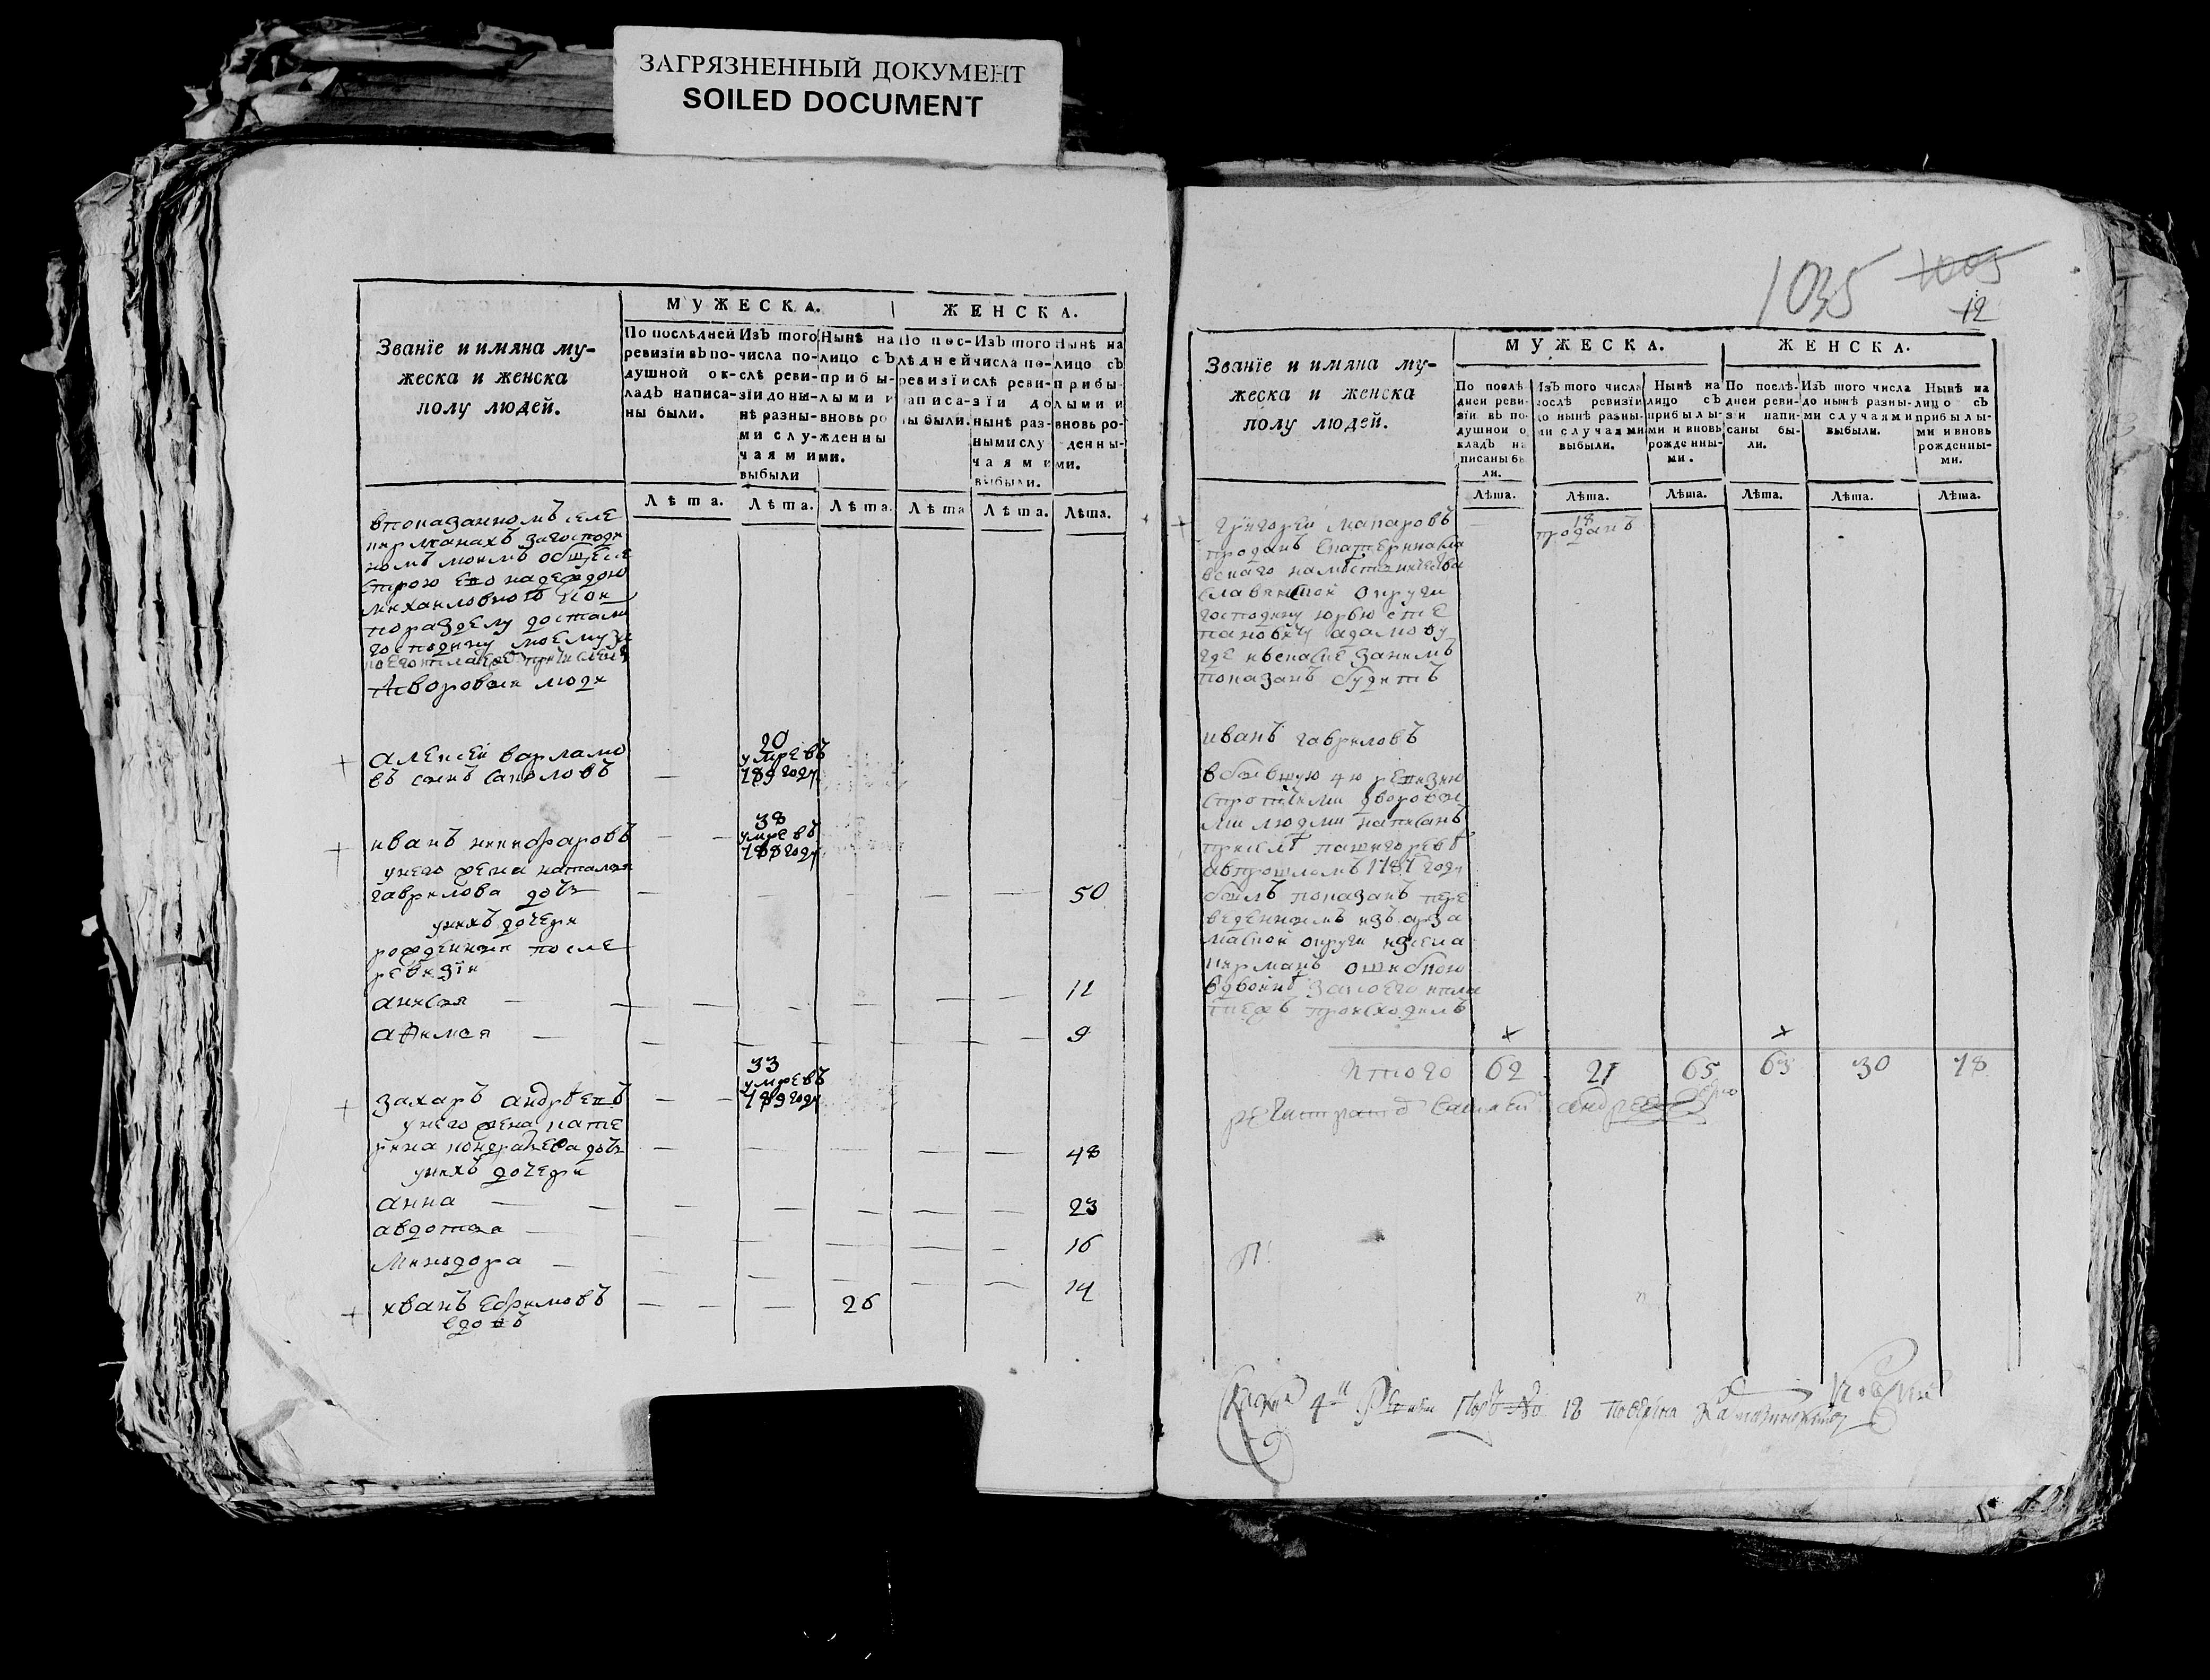 ЗАГРЯЗНЕННЫЙ ДОКУМЕНТ
SOILED DOCUMENT
Званїе и имяна му-
жеска и женска
полу людей.
МУЖЕСКА.
ЖЕНСКА.
По послѣдней
ревизїи въ по-
душной ок-
ладъ написа-
ны были.
Изъ того
числа по-
слѣ реви-
зїи до ны-
нѣ разны-
ми слу-
чаями
выбыли
Нынѣ на
лицо съ
прибы-
лыми и
вновь ро
жденны
ми.
По пос-
лѣдней
ревизїи
написа-
ны были.
Изъ того
числа по-
слѣ реви-
зїи до
нынѣ раз-
ными слу
чаями
выбыли.
Нынѣ на
лицо съ
прибы
лыми и
вновь ро-
денны-
ми.
Лѣта. Лѣта. Лѣта. Лѣта Лѣта. Лѣта.
впоказанномъ селе
кирманахъ загосподи
номъ моимъ общее
строю ево надеждою
михаиловною кои
поразделу достали
господину моему
дворовыя люди
20
алексей варламо
въ сынъ саколовъ — умревъ 789 году
38
иванъ никифаровъ — — умревъ 788 году
унего жена наталья
гаврилова дочь — — — — — 50
унихъ дочери
рожденныя после
ревизїи
анисья — — — — — — 12
афимья — — — — — — 9
33
захаръ андреевъ — — умревъ 789 году
унего жена кате
рина кондратьева дочь — — — — — 48
унихъ дочери
анна — — — — — — 23
авдотья — — — — — — 16
Минодора — — — — — — 14
иванъ Ефимовъ — — — 26
вдовъ
1035 1005
12
Званїе и имяна му-
жеска и женска
полу людей.
МУЖЕСКА.
ЖЕНСКА.
По послѣ
дней реви-
зїи въ по-
душной о
кладъ на
писаны бы
ли.
Изъ того числа
послѣ ревизїи
до нынѣ разны-
ми случаями
выбыли.
Нынѣ на
лицо съ
прибылы-
ми и вновь
рожденны-
ми.
По послѣ-
дней реви-
зи напи-
саны бы-
ли.
Изъ того числа
до нынѣ разны-
ми случаями
выбыли.
Нынѣ на
лицо съ
прибылы-
ми и вновь
рожденны-
ми.
Лѣта. Лѣта. Лѣта. Лѣта. Лѣта. Лѣта.
григорей макаровъ — 18
проданъ Екатеринасла проданъ
вскаго наместничества
славянской округи
господину юрью сте
пановичу адамову
где ивсказке занимъ
показанъ будитъ
иванъ гавриловъ
вбывшую 4ю ревизию
спротчими дворовы
ми людми написанъ
авпрошломъ 1787 году
былъ показанъ пере
веденнымъ изъ арза
маской округи изсела
кирманъ ошибкою
вдвойнѣ закоего ипла
тежъ происходилъ
Итого 62 21 65 63 30 78
регистраторъ андреевъ
П.
4й № 18